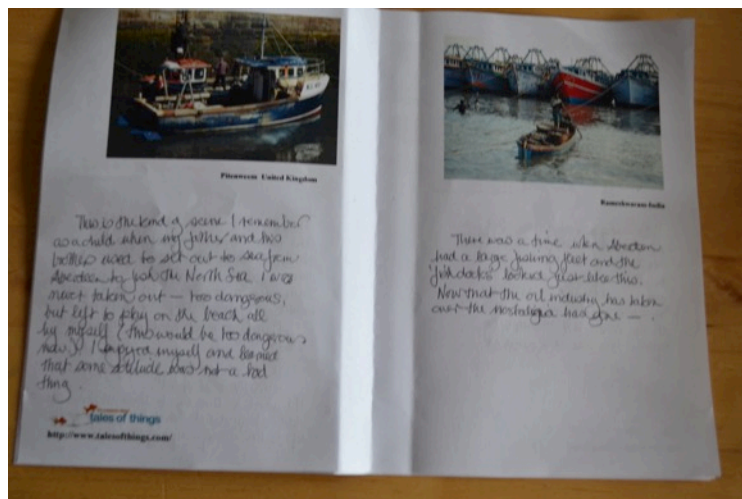 Pittenweem United Kingdom
This is the kind of scene I remember
as a child when my father and two
brothers used to set out to sea from
Aberdeen to fish the North Sea. I was
never taken out — too dangerous,
but left to play on the beach all
by myself (this would be too dangerous
now). I enjoyed myself and learned
that some solitude was not a bad
thing.
tales of things
http://www.talesofthings.com/
Rameshwaram India
There was a time when Aberdeen
had a large fishing fleet and the
fish docks looked just like this.
Now that the oil industry has taken
over the nostalgia has gone — .